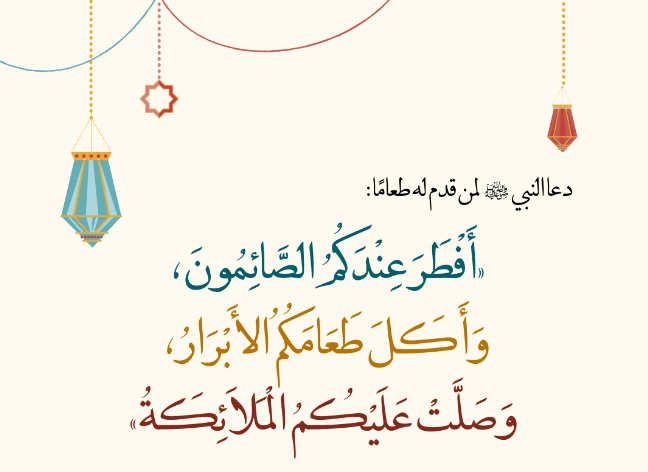 دعا النبي ﷺ لمن قدم له طعامًا:
«أَفْطَرَ عِنْدَكُمُ الصَّائِمُونَ،
وَأَكَلَ طَعَامَكُمُ الأَبْرَارُ،
وَصَلَّتْ عَلَيْكُمُ الْمَلاَئِكَةُ»